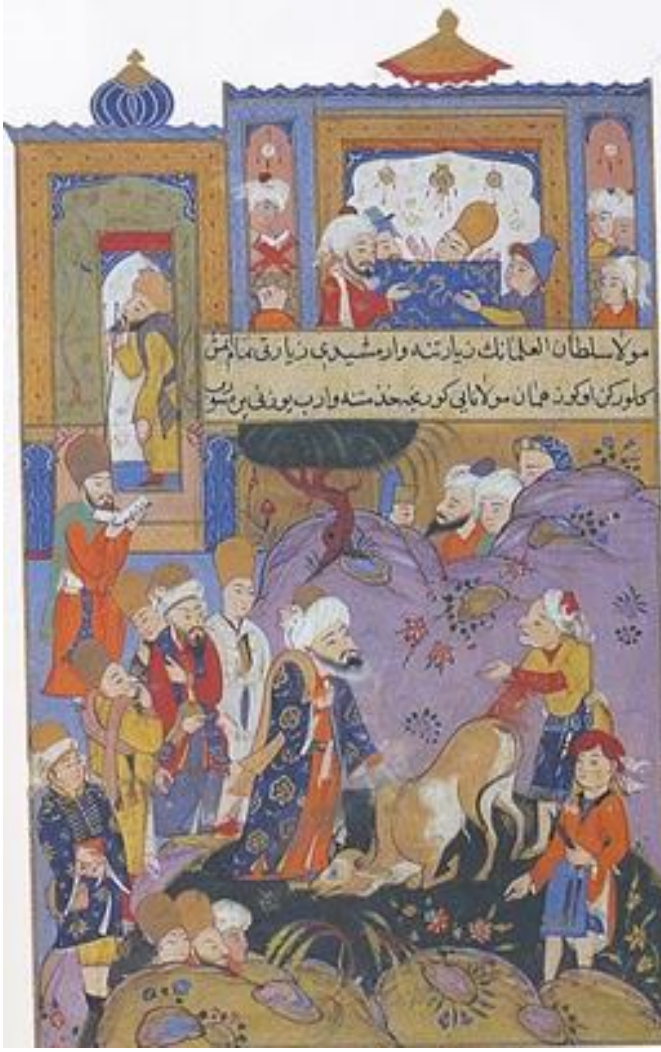 مولا سلطان العلمانك زيارتنه وارمشيدى زيارتى تمام
كلوركن اوكوز همان مولانايى كوريجه خدمته وارب يوزنى